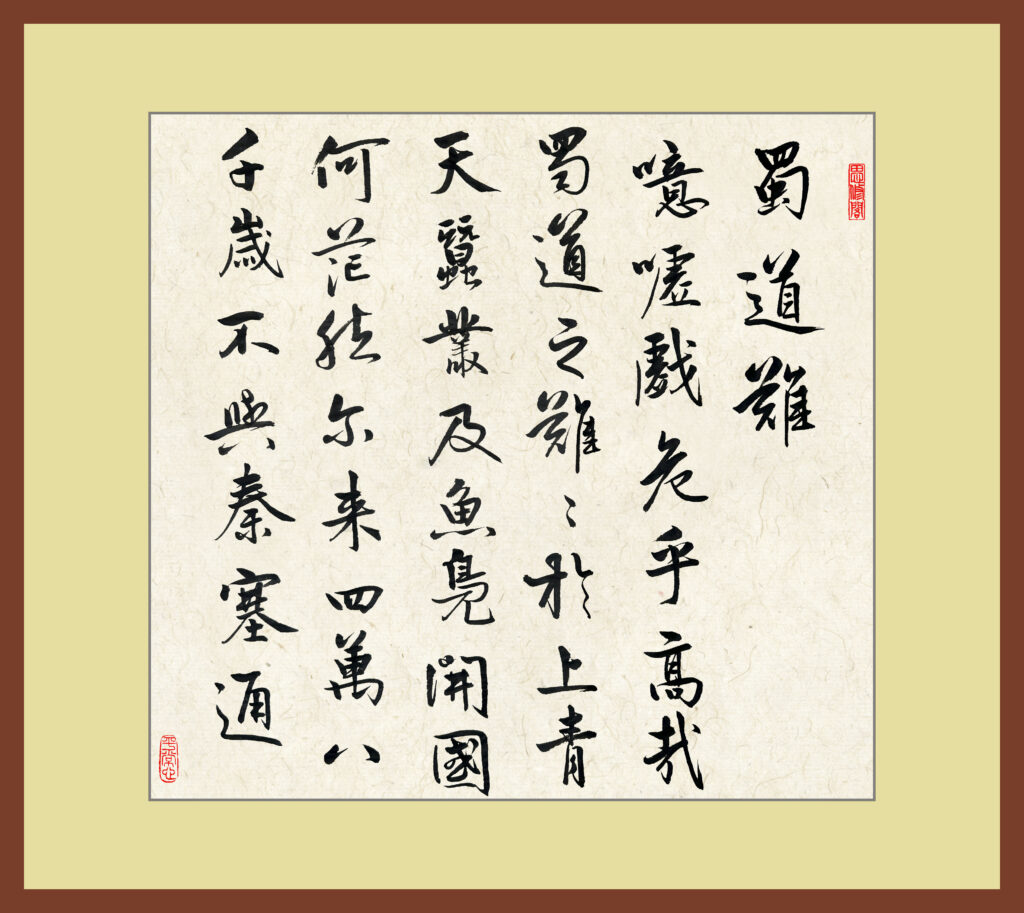 思修閣
蜀道難
噫噓戲危乎高哉
蜀道之難〻於上青
天蠶叢及魚鳧開國
何茫然尔来四萬八
千歲不與秦塞通
平常心